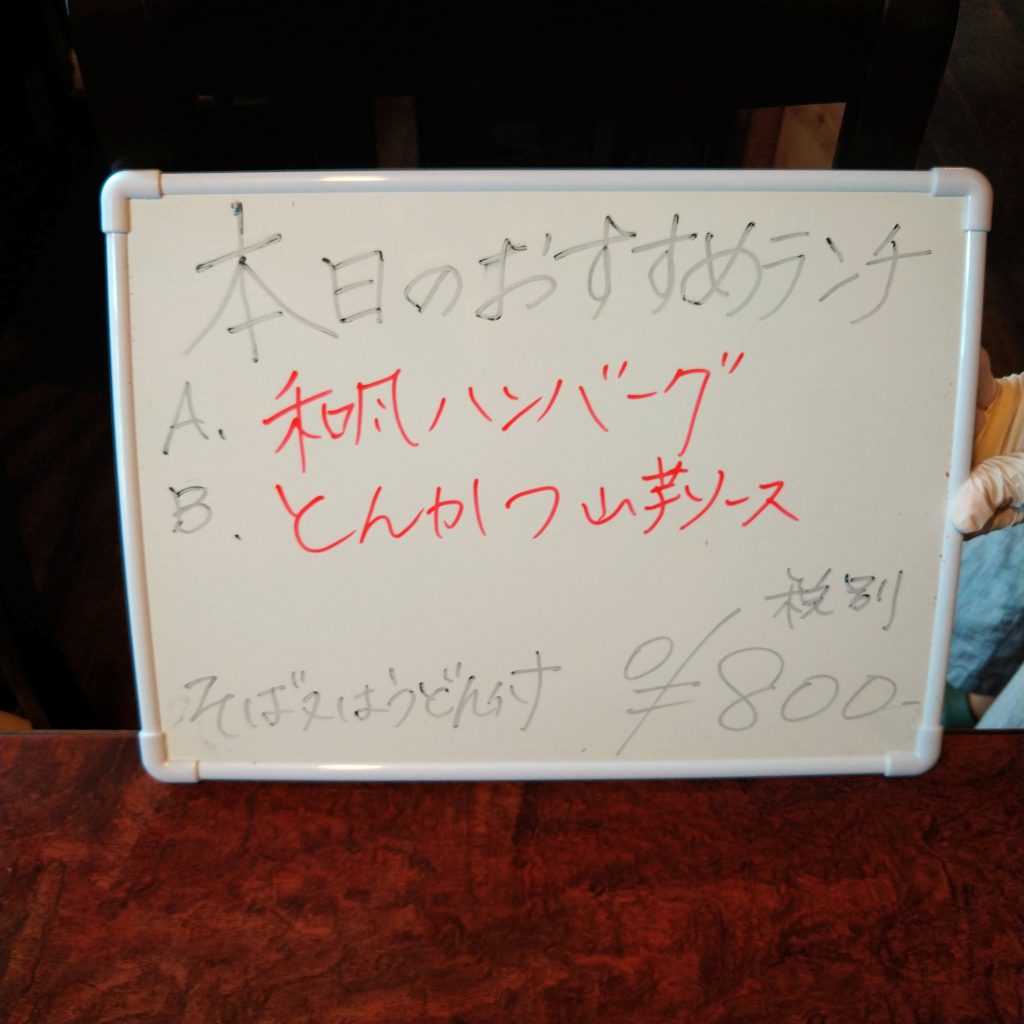 本日のおすすめランチ
A. 和風ハンバーグ
B. とんかつ山芋ソース
税別
そば又はうどん付 ¥800-